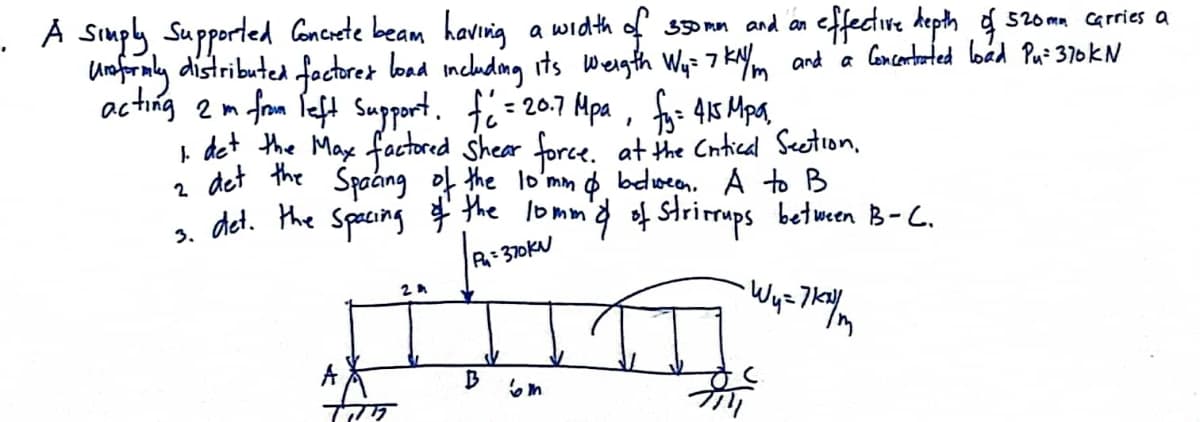 . A Simply Supported Concrete beam having a width of 350mm and an effective depth of 520mm carries a
Uniformly distributed factored load including its weigth Wu= 7 kN/m and a Concentrated load Pu= 370kN
acting 2 m from left Support. f'c = 20.7 Mpa , fy= 415 Mpa,
1. det the Max factored Shear force. at the Critical Section.
2 det the Spacing of the 10 mm ϕ between. A to B
3. det. the spacing of the 10mm ϕ of Stirrups between B-C.
Pu= 370KN
2 m
Wu= 7kN/m
A
B
6m
C